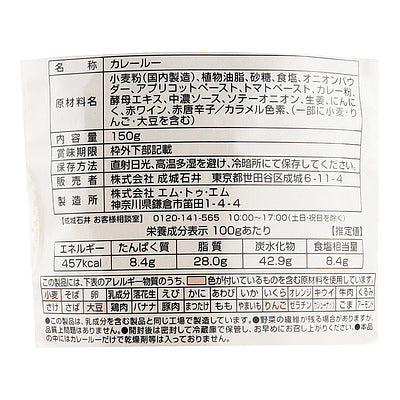 名称 カレールー
原材料名 小麦粉(国内製造)、植物油脂、砂糖、食塩、オニオンパウ
ダー、アプリコットペースト、トマトペースト、カレー粉、
酵母エキス、中濃ソース、ソテーオニオン、生姜、にんに
く、赤ワイン、赤唐辛子/カラメル色素、(一部に小麦・り
んご・大豆を含む)
内容量 150g
賞味期限 枠外下部記載
保存方法 直射日光、高温多湿を避け、冷暗所にて保存してください。
販売者 株式会社 成城石井 東京都世田谷区成城6-11-4
製造所 株式会社 エム・トゥ・エム
神奈川県鎌倉市笛田1-4-4
【成城石井 お客様相談室】 0120-141-565 10:00~17:00(土・日・祝を除く)
栄養成分表示 100gあたり [推定値]
エネルギー たんぱく質 脂質 炭水化物 食塩相当量
457kcal 8.4g 28.0g 42.9g 8.4g
この製品には、下表のアレルギー物質のうち、 色が付いているものを含む原材料を使用しています。
小麦 そば 卵 乳成分 落花生 えび かに あわび いか いくら オレンジ キウイ 牛肉 くるみ
さけ さば 大豆 鶏肉 バナナ 豚肉 まつたけ もも やまいも りんご ゼラチン カシューナッツ ごま アーモンド
●この製品は、乳成分を含む製品と同じ工場で製造しています。●野菜の繊維が残る場合がありますが、
品質上問題はありません。●開封後は密封して冷蔵庫で保管し、お早めにお召し上がりください。●本品
の中にはカレールーだけで乾燥剤等は入っておりません。